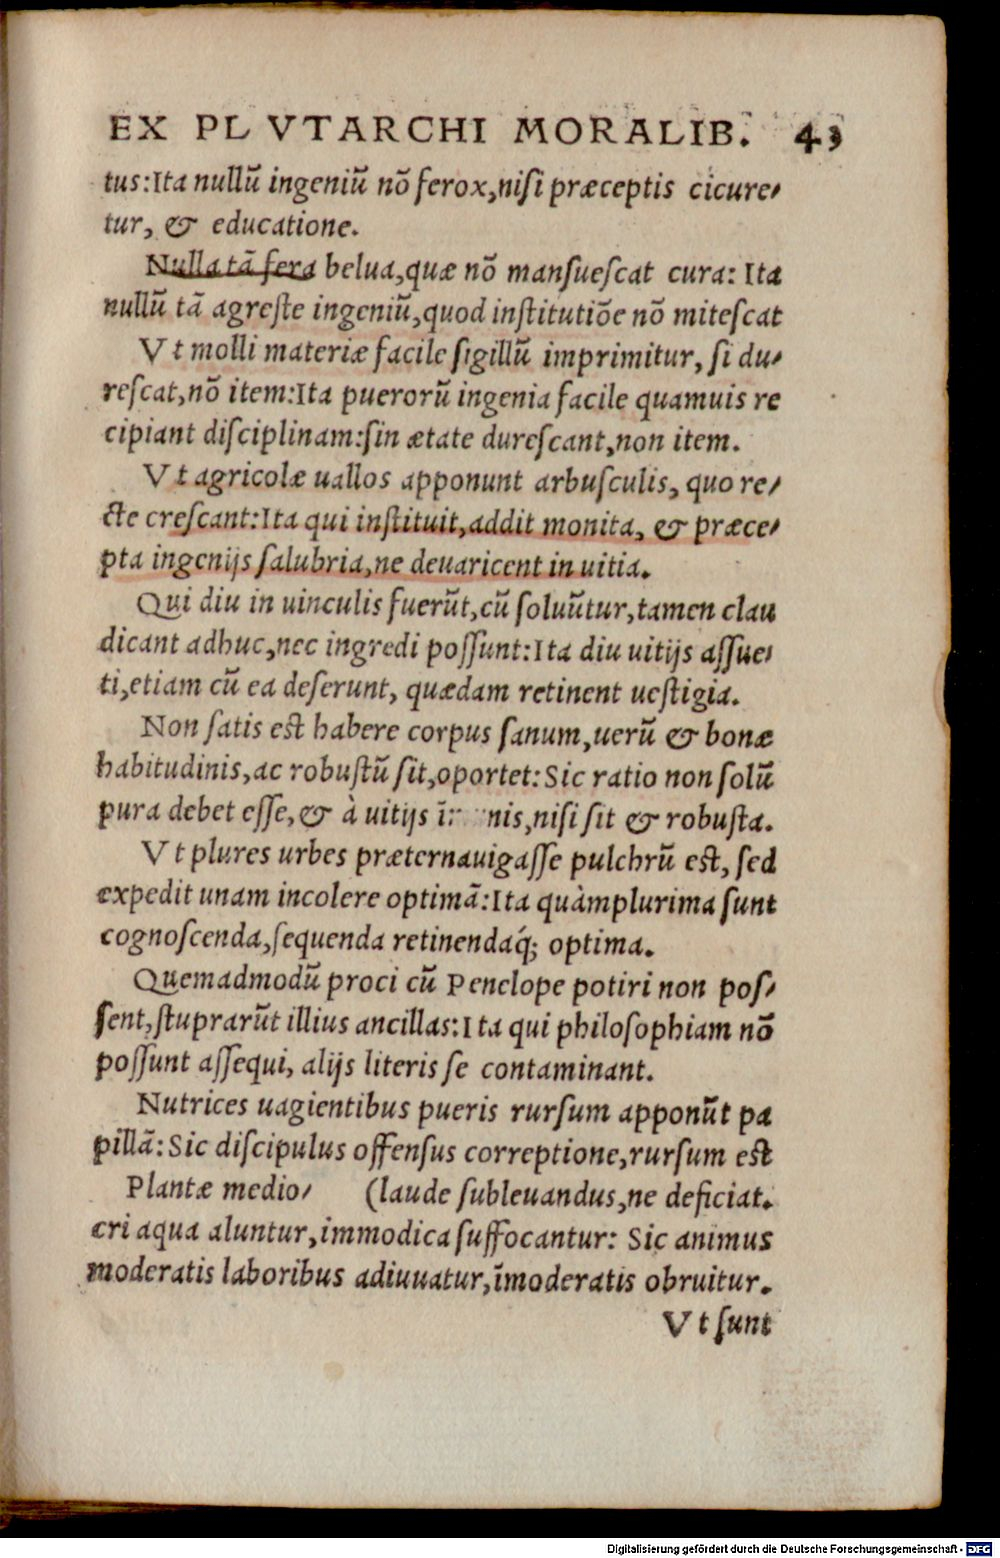 EX PLVTARCHI MORALIB. 43
tus:Ita nullũ ingeniũ nõ ferox,nisi præceptis cicure⸗
tur, & educatione.
Nulla tã fera belua,quæ nõ mansuescat cura: Ita
nullũ tã agreste ingeniũ,quod institutiõe nõ mitescat
Vt molli materiæ facile sigillũ imprimitur, si du⸗
rescat,nõ item:Ita puerorũ ingenia facile quamuis re
cipiant disciplinam:sin ætate durescant,non item.
Vt agricolæ uallos apponunt arbusculis, quo re⸗
cte crescant:Ita qui instituit,addit monita, & præce⸗
pta ingenijs salubria,ne deuaricent in uitia.
Qui diu in uinculis fuerũt,cũ soluũtur,tamen clau
dicant adhuc,nec ingredi possunt:Ita diu uitijs assue⸗
ti,etiam cũ ea deserunt, quædam retinent uestigia.
Non satis est habere corpus sanum,uerũ & bonæ
habitudinis,ac robustũ sit,oportet: Sic ratio non solũ
pura debet esse,& à uitijs nis,nisi sit & robusta.
Vt plures urbes præternauigasse pulchrũ est, sed
expedit unam incolere optimã:Ita quàmplurima sunt
cognoscenda,sequenda retinendaq́; optima.
Quemadmodũ proci cũ Penelope potiri non pos⸗
sent,stuprarũt illius ancillas:Ita qui philosophiam nõ
possunt assequi, alijs literis se contaminant.
Nutrices uagientibus pueris rursum apponũt pa
pillã: Sic discipulus offensus correptione,rursum est
Plantæ medio⸗ (laude subleuandus,ne deficiat.
cri aqua aluntur,immodica suffocantur: Sic animus
moderatis laboribus adiuuatur,ĩmoderatis obruitur.
Vt sunt
Digitalisierung gefördert durch die Deutsche Forschungsgemeinschaft - DFG